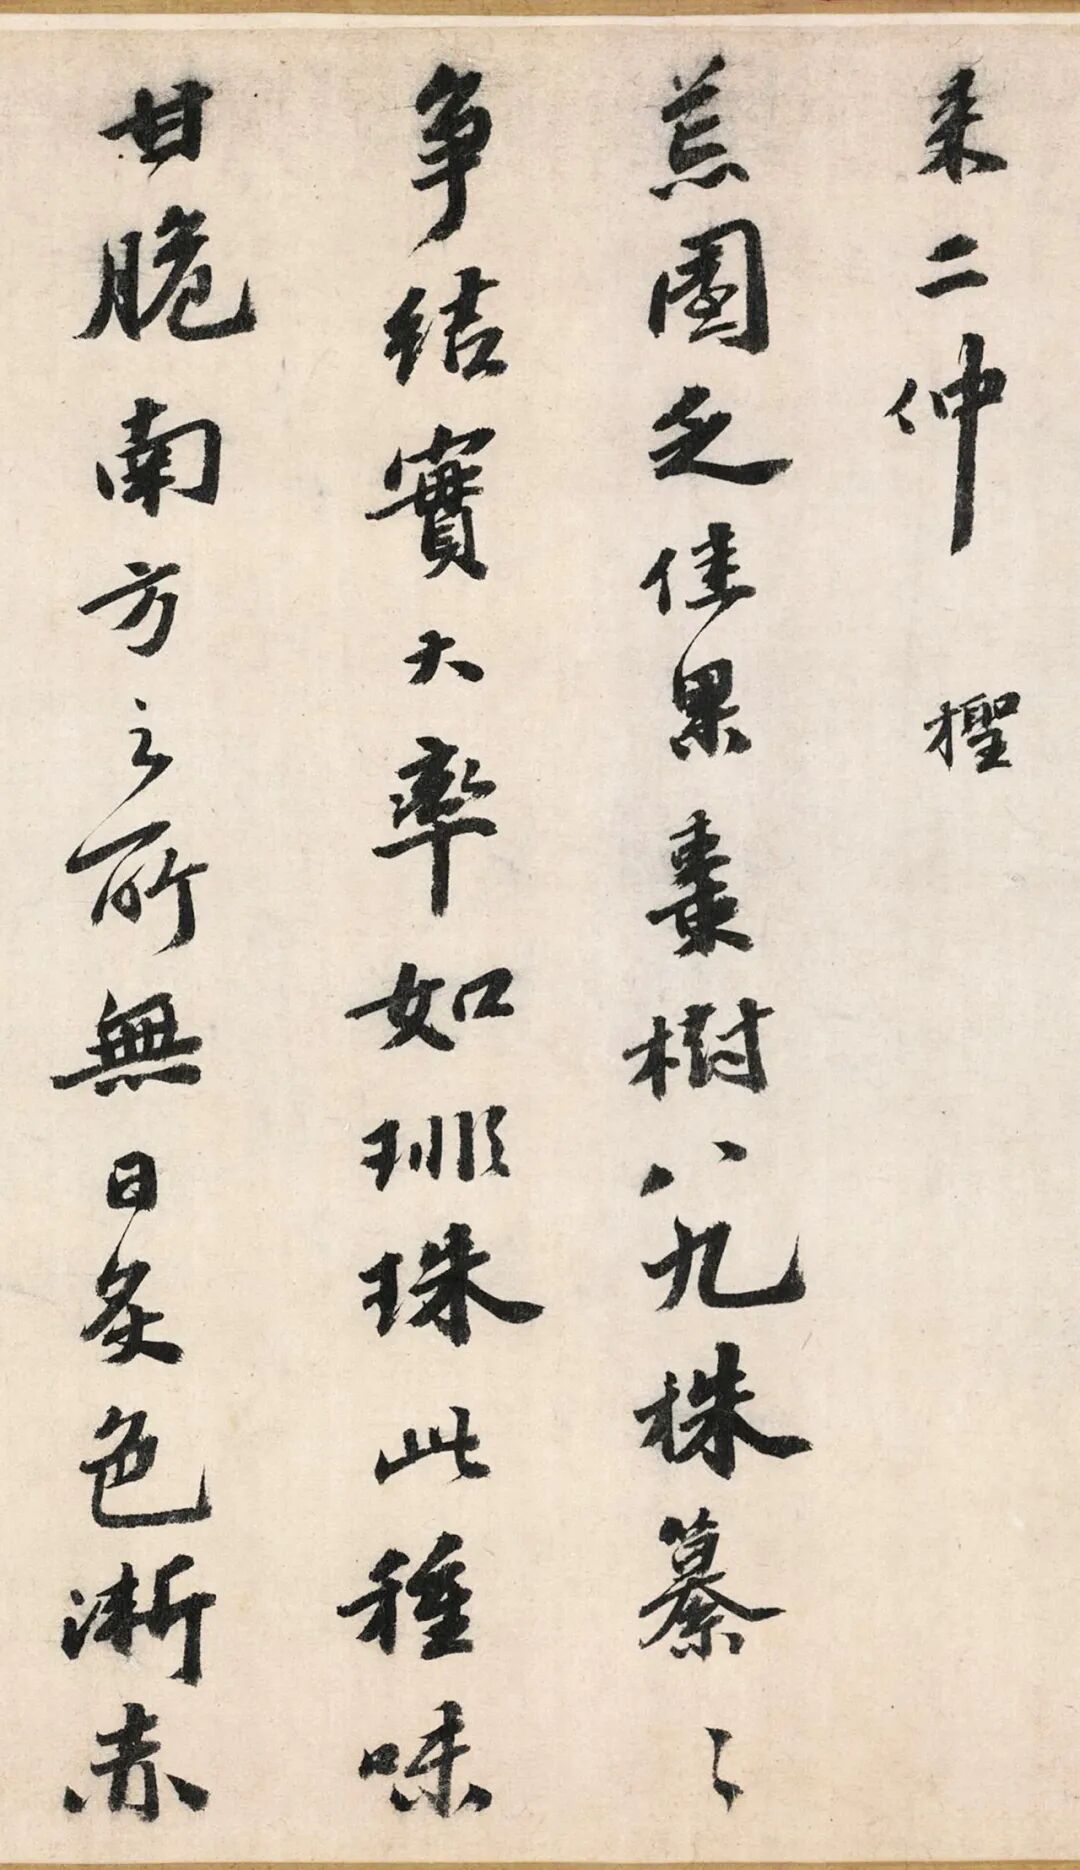 来二仲 檉
荒園乏佳果棗樹八九株纂〻
争結實大率如琲珠此種味
甘脆南方之所無日炙色漸赤